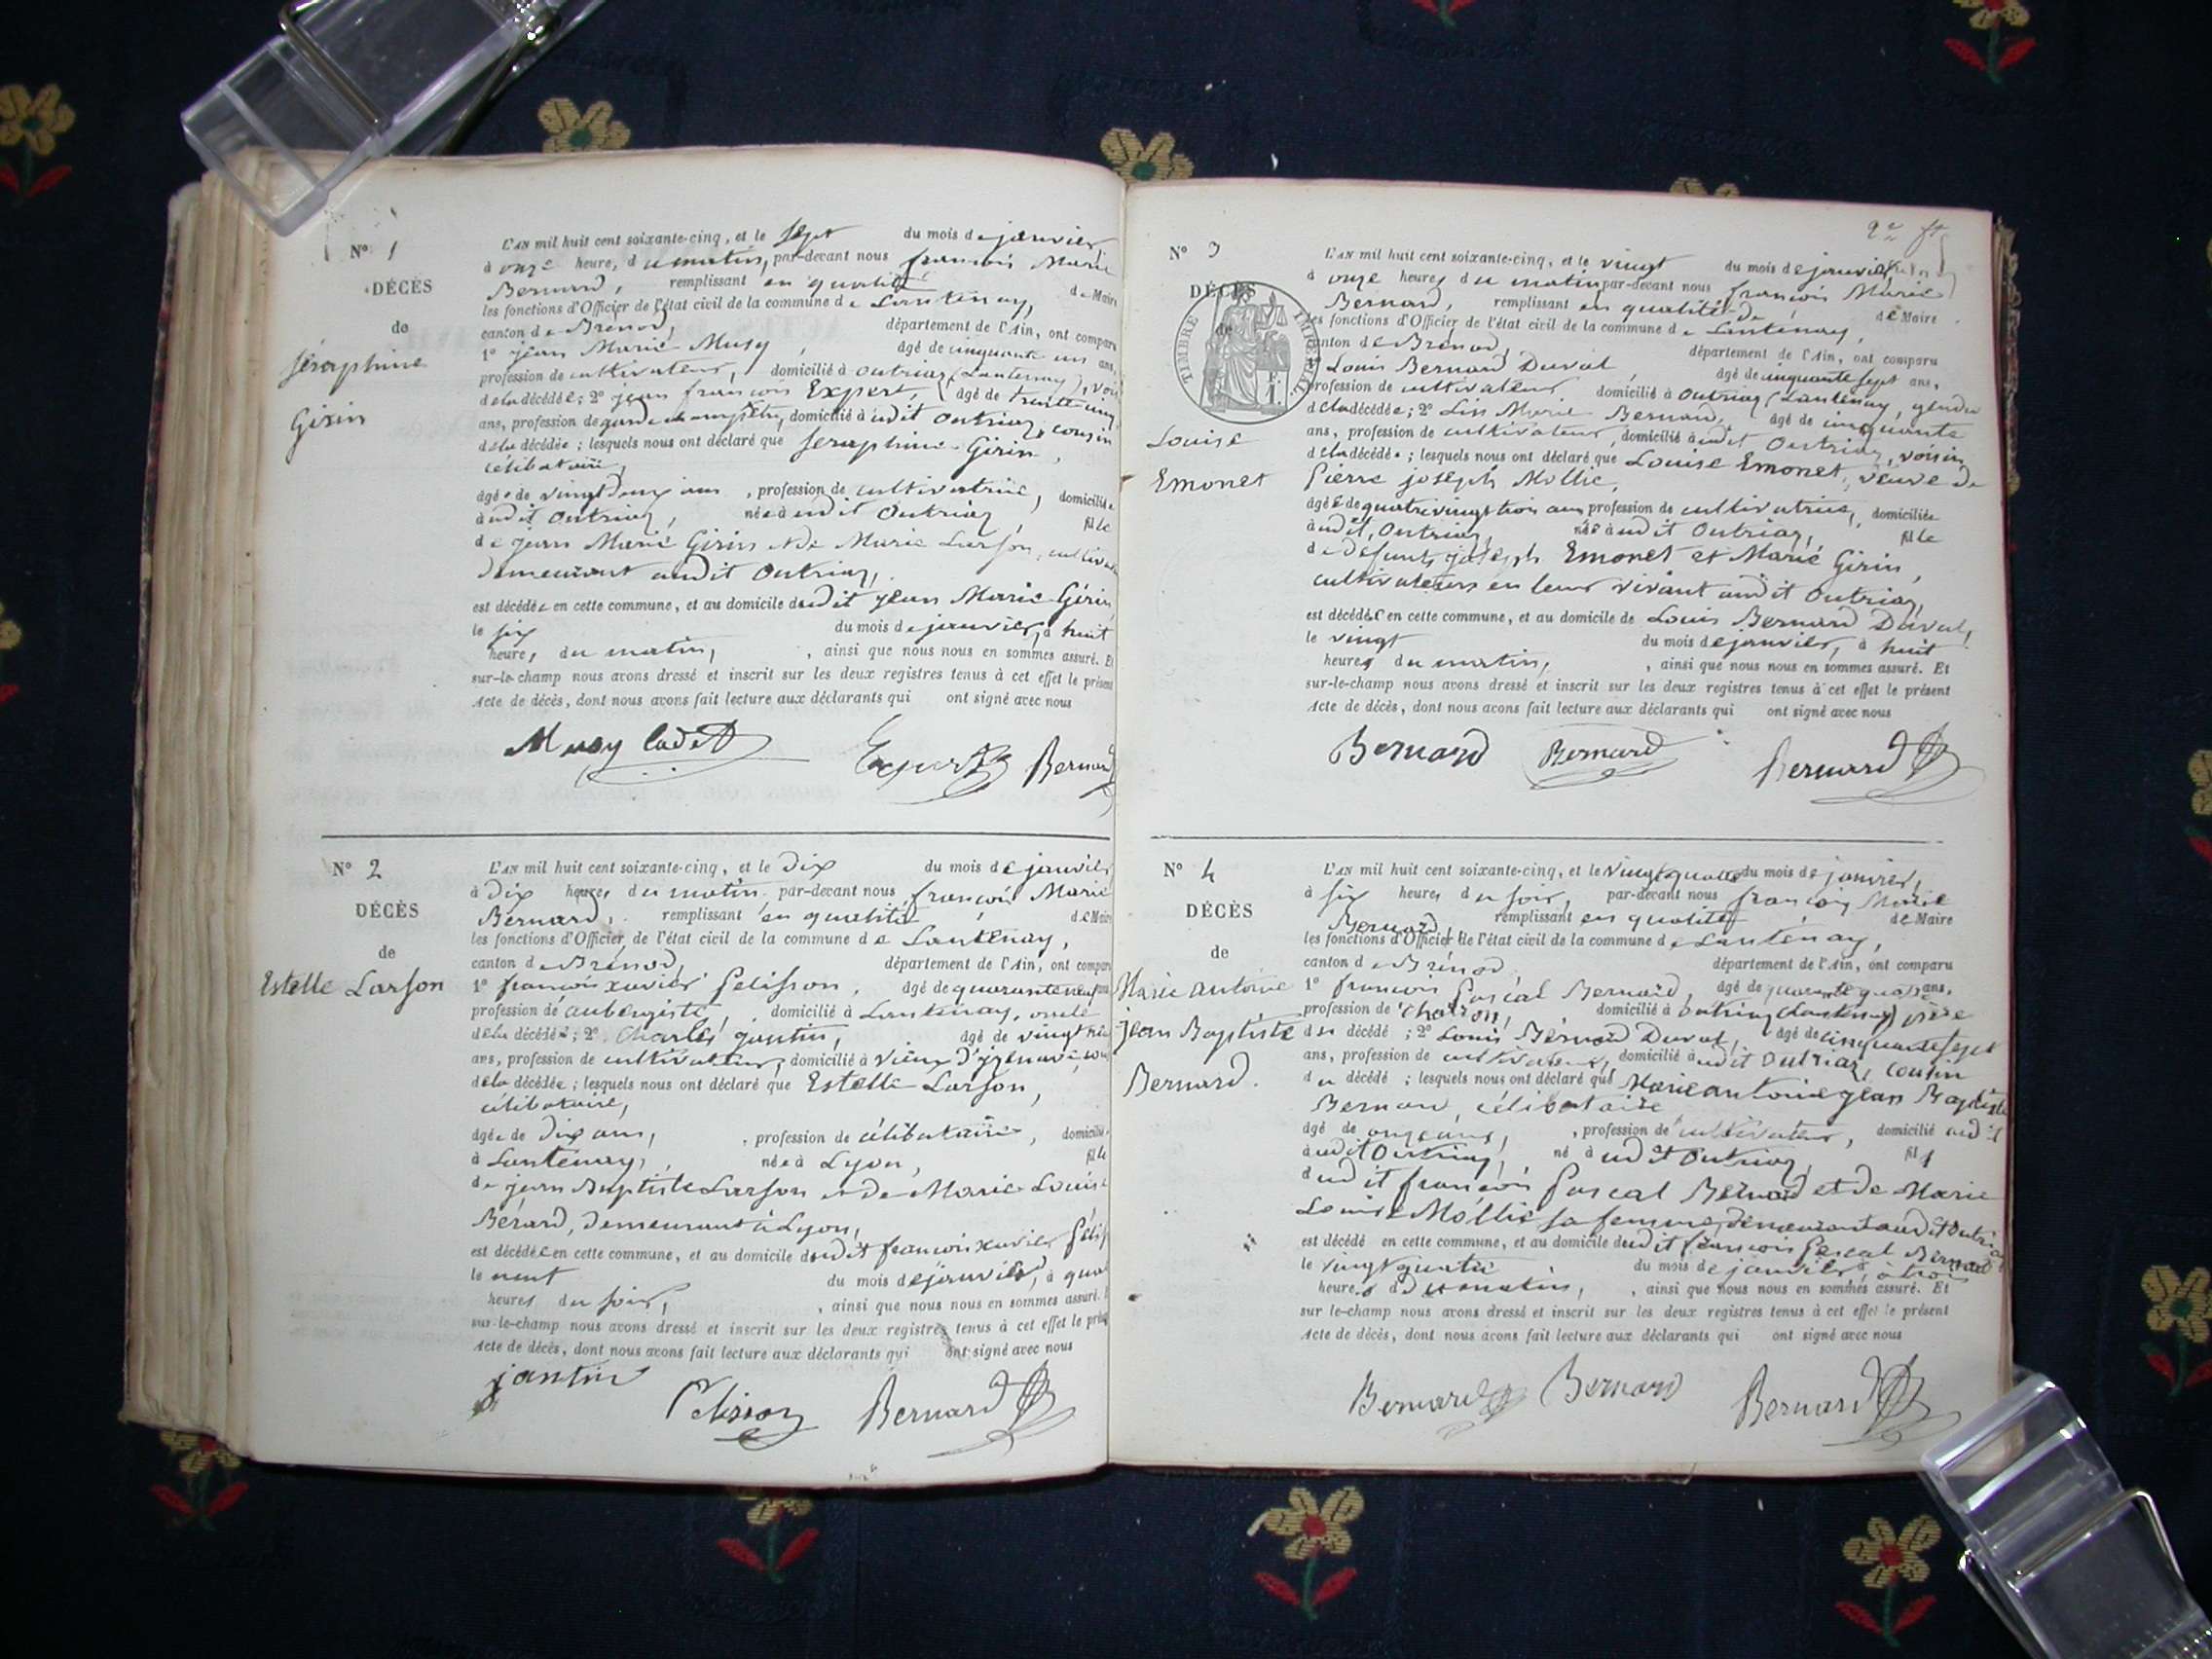 N° 1
DÉCÈS
de
Séraphine
Girin
L'AN mil huit cent soixante-cinq, et le sept du mois de janvier,
à onze heure, du matin, par-devant nous françois Marie
Bernard, remplissant en qualité de Maire
les fonctions d'Officier de l'état civil de la commune de Lantenay,
canton de Brénod, département de l'Ain, ont comparu
1° jean Marie Musy, âgé de cinquante un ans,
profession de cultivateur, domicilié à Outriaz (Lantenay), voisin
de la décédée; 2° jean françois Expert, âgé de trente cinq
ans, profession de garde champêtre, domicilié à udit Outriaz, cousin
de la décédée; lesquels nous ont déclaré que Seraphine Girin,
célibataire,
âgée de vingt deux ans, profession de cultivatrice, domiciliée
à udit Outriaz, née à udit Outriaz, fille
de jean Marie Girin et de Marie Larson,
demeurant audit Outriaz,
est décédée en cette commune, et au domicile dudit jean Marie Girin
le six du mois de janvier, à huit
heures, du matin, , ainsi que nous nous en sommes assuré. Et
sur-le-champ nous avons dressé et inscrit sur les deux registres tenus à cet effet le présent
Acte de décès, dont nous avons fait lecture aux déclarants qui ont signé avec nous
Musy Cadet Expert Bernard
N° 2
DÉCÈS
de
Estelle Larson
L'AN mil huit cent soixante-cinq, et le dix du mois de janvier
à dix heures du matin, par-devant nous françois Marie
Bernard, remplissant en qualité de Maire
les fonctions d'Officier de l'état civil de la commune de Lantenay,
canton de Brénod, département de l'Ain, ont comparu
1° françois xavier Pelisson, âgé de quarante neuf ans
profession de aubergiste, domicilié à Lantenay, oncle
de la décédée; 2° Charles jantin, âgé de vingt
ans, profession de cultivateur, domicilié à vieux d'izenave,
de la décédée; lesquels nous ont déclaré que Estelle Larson,
célibataire,
âgée de dix ans, , profession de célibataire, domiciliée
à Lantenay, née à Lyon, fille
de jean Baptiste Larson et de Marie Louise
Bérard, demeurant à Lyon,
est décédée en cette commune, et au domicile dudit françois xavier Pelis
le neuf du mois de janvier, à qua
heures du soir, , ainsi que nous nous en sommes assuré.
sur-le-champ nous avons dressé et inscrit sur les deux registres tenus à cet effet le prés
Acte de décès, dont nous avons fait lecture aux déclarants qui ont signé avec nous
jantin Pelisson Bernard
2e ft
N° 3
DÉCÈS
de
TIMBRE IMPÉRIAL
Louise
Emonet
L'AN mil huit cent soixante-cinq, et le vingt du mois de janvier
à onze heures du matin par-devant nous françois Marie
Bernard, remplissant en qualité de de Maire
les fonctions d'Officier de l'état civil de la commune de Lantenay,
canton de Brénod, département de l'Ain, ont comparu
Louis Bernard Duval, âgé de cinquante sept ans,
profession de cultivateur domicilié à Outriaz (Lantenay, gendre
de la décédée; 2° Lin Marie Bernard, âgé de cinquante
ans, profession de cultivateur, domicilié à udit Outriaz, voisin
de la décédée; lesquels nous ont déclaré que Louise Emonet, veuve de
Pierre joseph Mollie,
âgée de quatre vingt trois ans profession de cultivatrice, domiciliée
à udit, Outriaz, née à udit Outriaz, fille
de défunts joseph Emonet et Marie Girin,
cultivateurs en leur vivant audit Outriaz,
est décédée en cette commune, et au domicile de Louis Bernard Duval,
le vingt du mois de janvier, à huit
heures du matin, , ainsi que nous nous en sommes assuré. Et
sur-le-champ nous avons dressé et inscrit sur les deux registres tenus à cet effet le présent
Acte de décès, dont nous avons fait lecture aux déclarants qui ont signé avec nous
Bernard Bernard Bernard
N° 4
DÉCÈS
de
Marie antoine
jean Baptiste
Bernard.
L'AN mil huit cent soixante-cinq, et le vingt quatre du mois de janvier,
à six heures du soir, par-devant nous françois Marie
Bernard, remplissant en qualité de Maire
les fonctions d'Officier de l'état civil de la commune de Lantenay,
canton de Brénod département de l'Ain, ont comparu
1° françois Pascal Bernard, âgé de quarante quatre ans,
profession de charron, domicilié à Outriaz (Lantenay) père
du décédé; 2° Louis Bernard Duval, âgé de cinquante sept
ans, profession de cultivateur, domicilié à udit Outriaz, cousin
du décédé; lesquels nous ont déclaré que Marie antoine jean Baptiste
Bernard, célibataire
âgé de onze ans, , profession de cultivateur, domicilié audit
à udit Outriaz, né à udit Outriaz, fils
dudit françois Pascal Bernard et de Marie
Louise Mollie sa femme, demeurant audit Outriaz
est décédé en cette commune, et au domicile dudit françois Pascal Bernard
le vingt quatre du mois de janvier, à trois
heures du matin, , ainsi que nous nous en sommes assuré. Et
sur le-champ nous avons dressé et inscrit sur les deux registres tenus à cet effet le présent
Acte de décès, dont nous avons fait lecture aux déclarants qui ont signé avec nous
Bernard Bernard Bernard